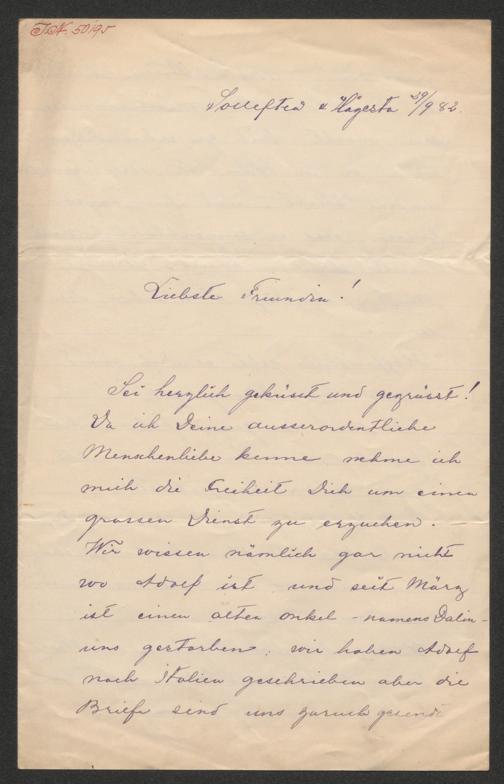 I.N. 50195
Sollefteå u. Hågesta 29/9 82.
Liebste Freundin!
Sei herzlich geküsst und gegrüsst!
Da ich Deine ausserordentliche
Menschenliebe kenne nehme ich
mich die Freiheit Dich um einen
grossen Dienst zu erzuchen. —
Wir wissen nämlich gar nicht
wo Adolf ist und seit März
ist einen alten onkel - namens Dalin -
uns gestorben; wir haben Adolf
nach Italien geschrieben aber die
Briefe sind uns zuruch gesendt